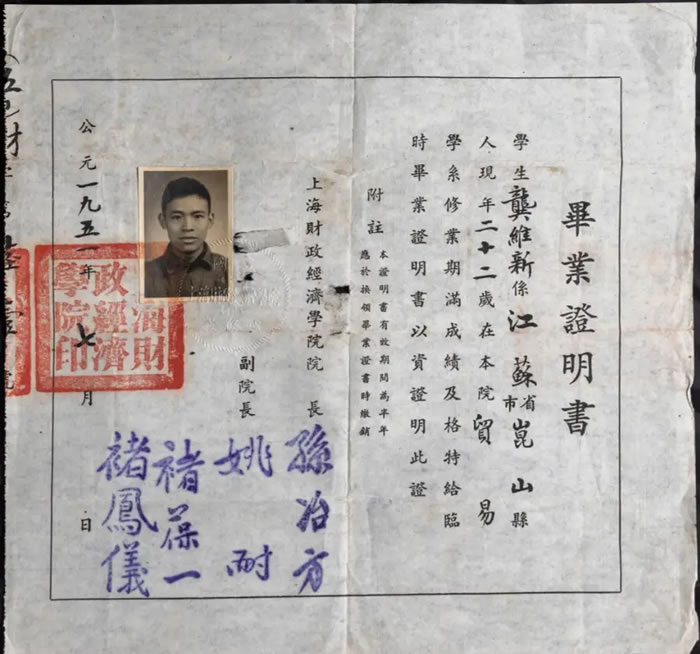 畢業證明書
學生龔維新係江蘇省市崑山縣
人現年二十二歲在本院貿易
學系修業期滿成績及格特給臨
時畢業證明書以資證明此證
附註
本證明書有效期間為半年
應於換領畢業證書時繳銷
上海財政經濟學院院長
孫冶方
副院長
姚耐
褚葆一
褚鳳儀
公元一九五一年七月日
海財
政經濟
學院印